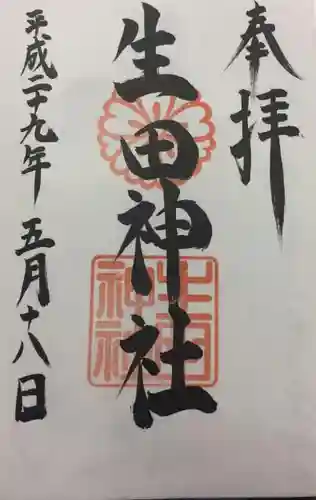 奉拝
生田神社
生田神社
平成二十九年 五月十八日